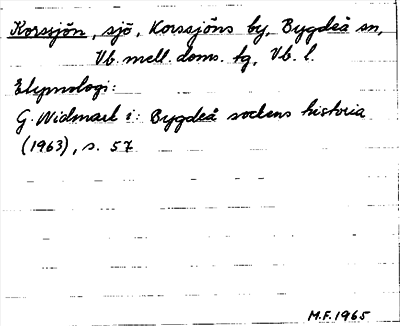 Korssjön, sjö, Korssjöns by, Bygdeå sn,
Vb. mell. doms. tg, Vb. l.
Etymologi:
G. Widmark i: Bygdeå sockens historia
(1963), s. 57
M.F. 1965